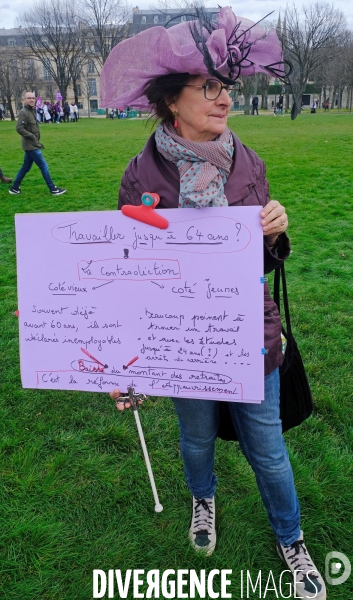 Travailler jusqu'à 64 ans ?
La Contradiction
Coté vieux
coté jeunes
souvent déjà
avant 60 ans, ils sont
déclarés inemployables
beaucoup peinent à
trouver un travail
et avec les études
jusqu'à 24 ans (!) et des
de carrière...
Baisse du montant des retraites
C'est la réforme de l'Appauvrissement
DIVERGENCE IMAGES